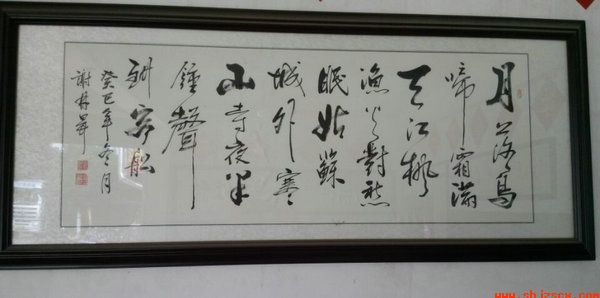 月落烏
啼霜滿
天江楓
漁火對愁
眠姑蘇
城外寒
山寺夜半
鍾聲
到客船
癸巳年冬月
謝